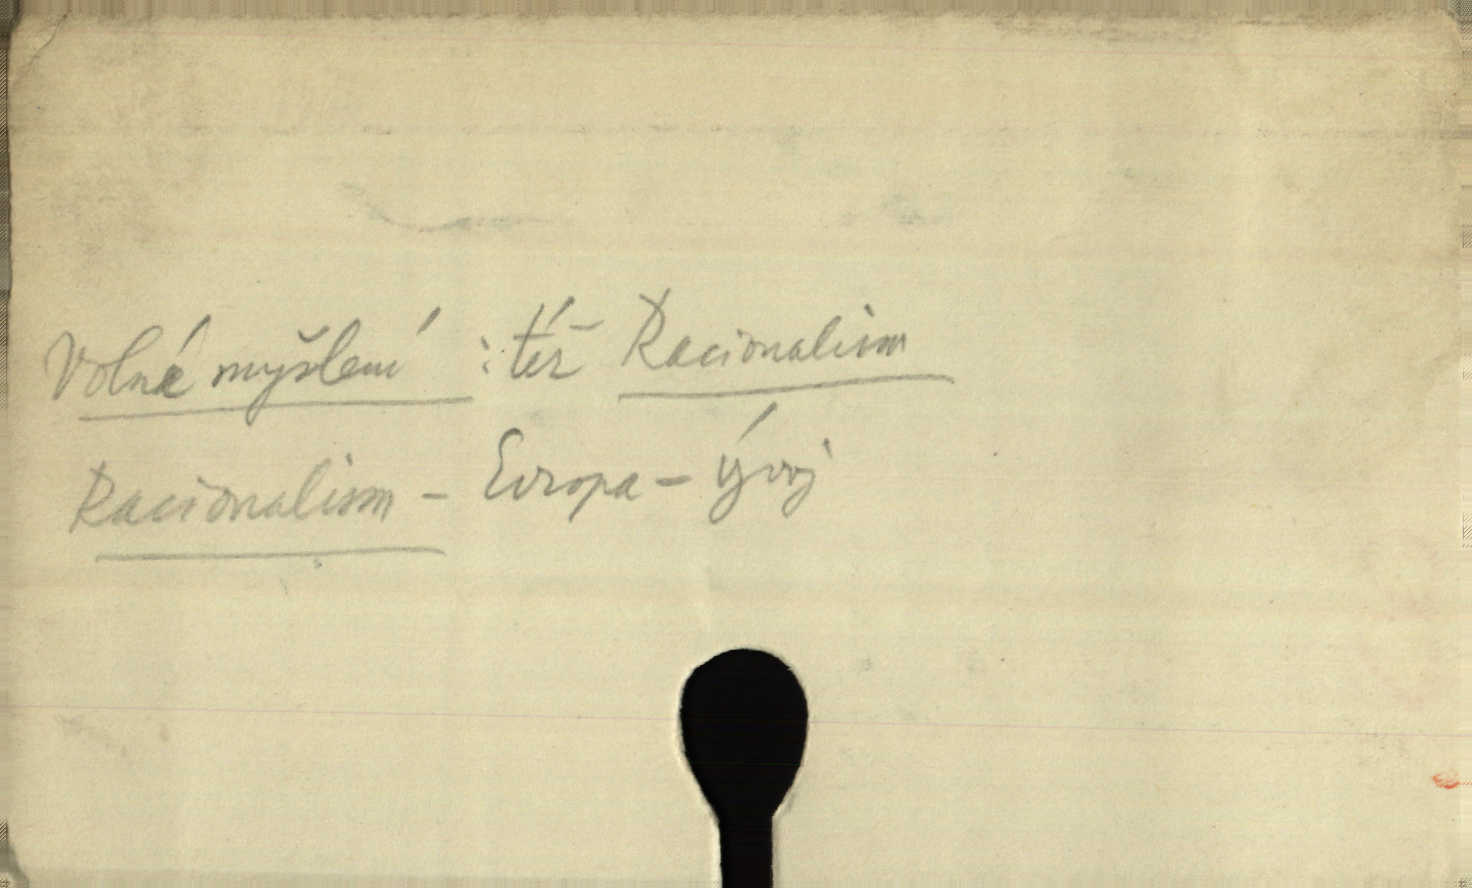 Volné myšlení : též Racionalism
Racionalism - Evropa - ývoj